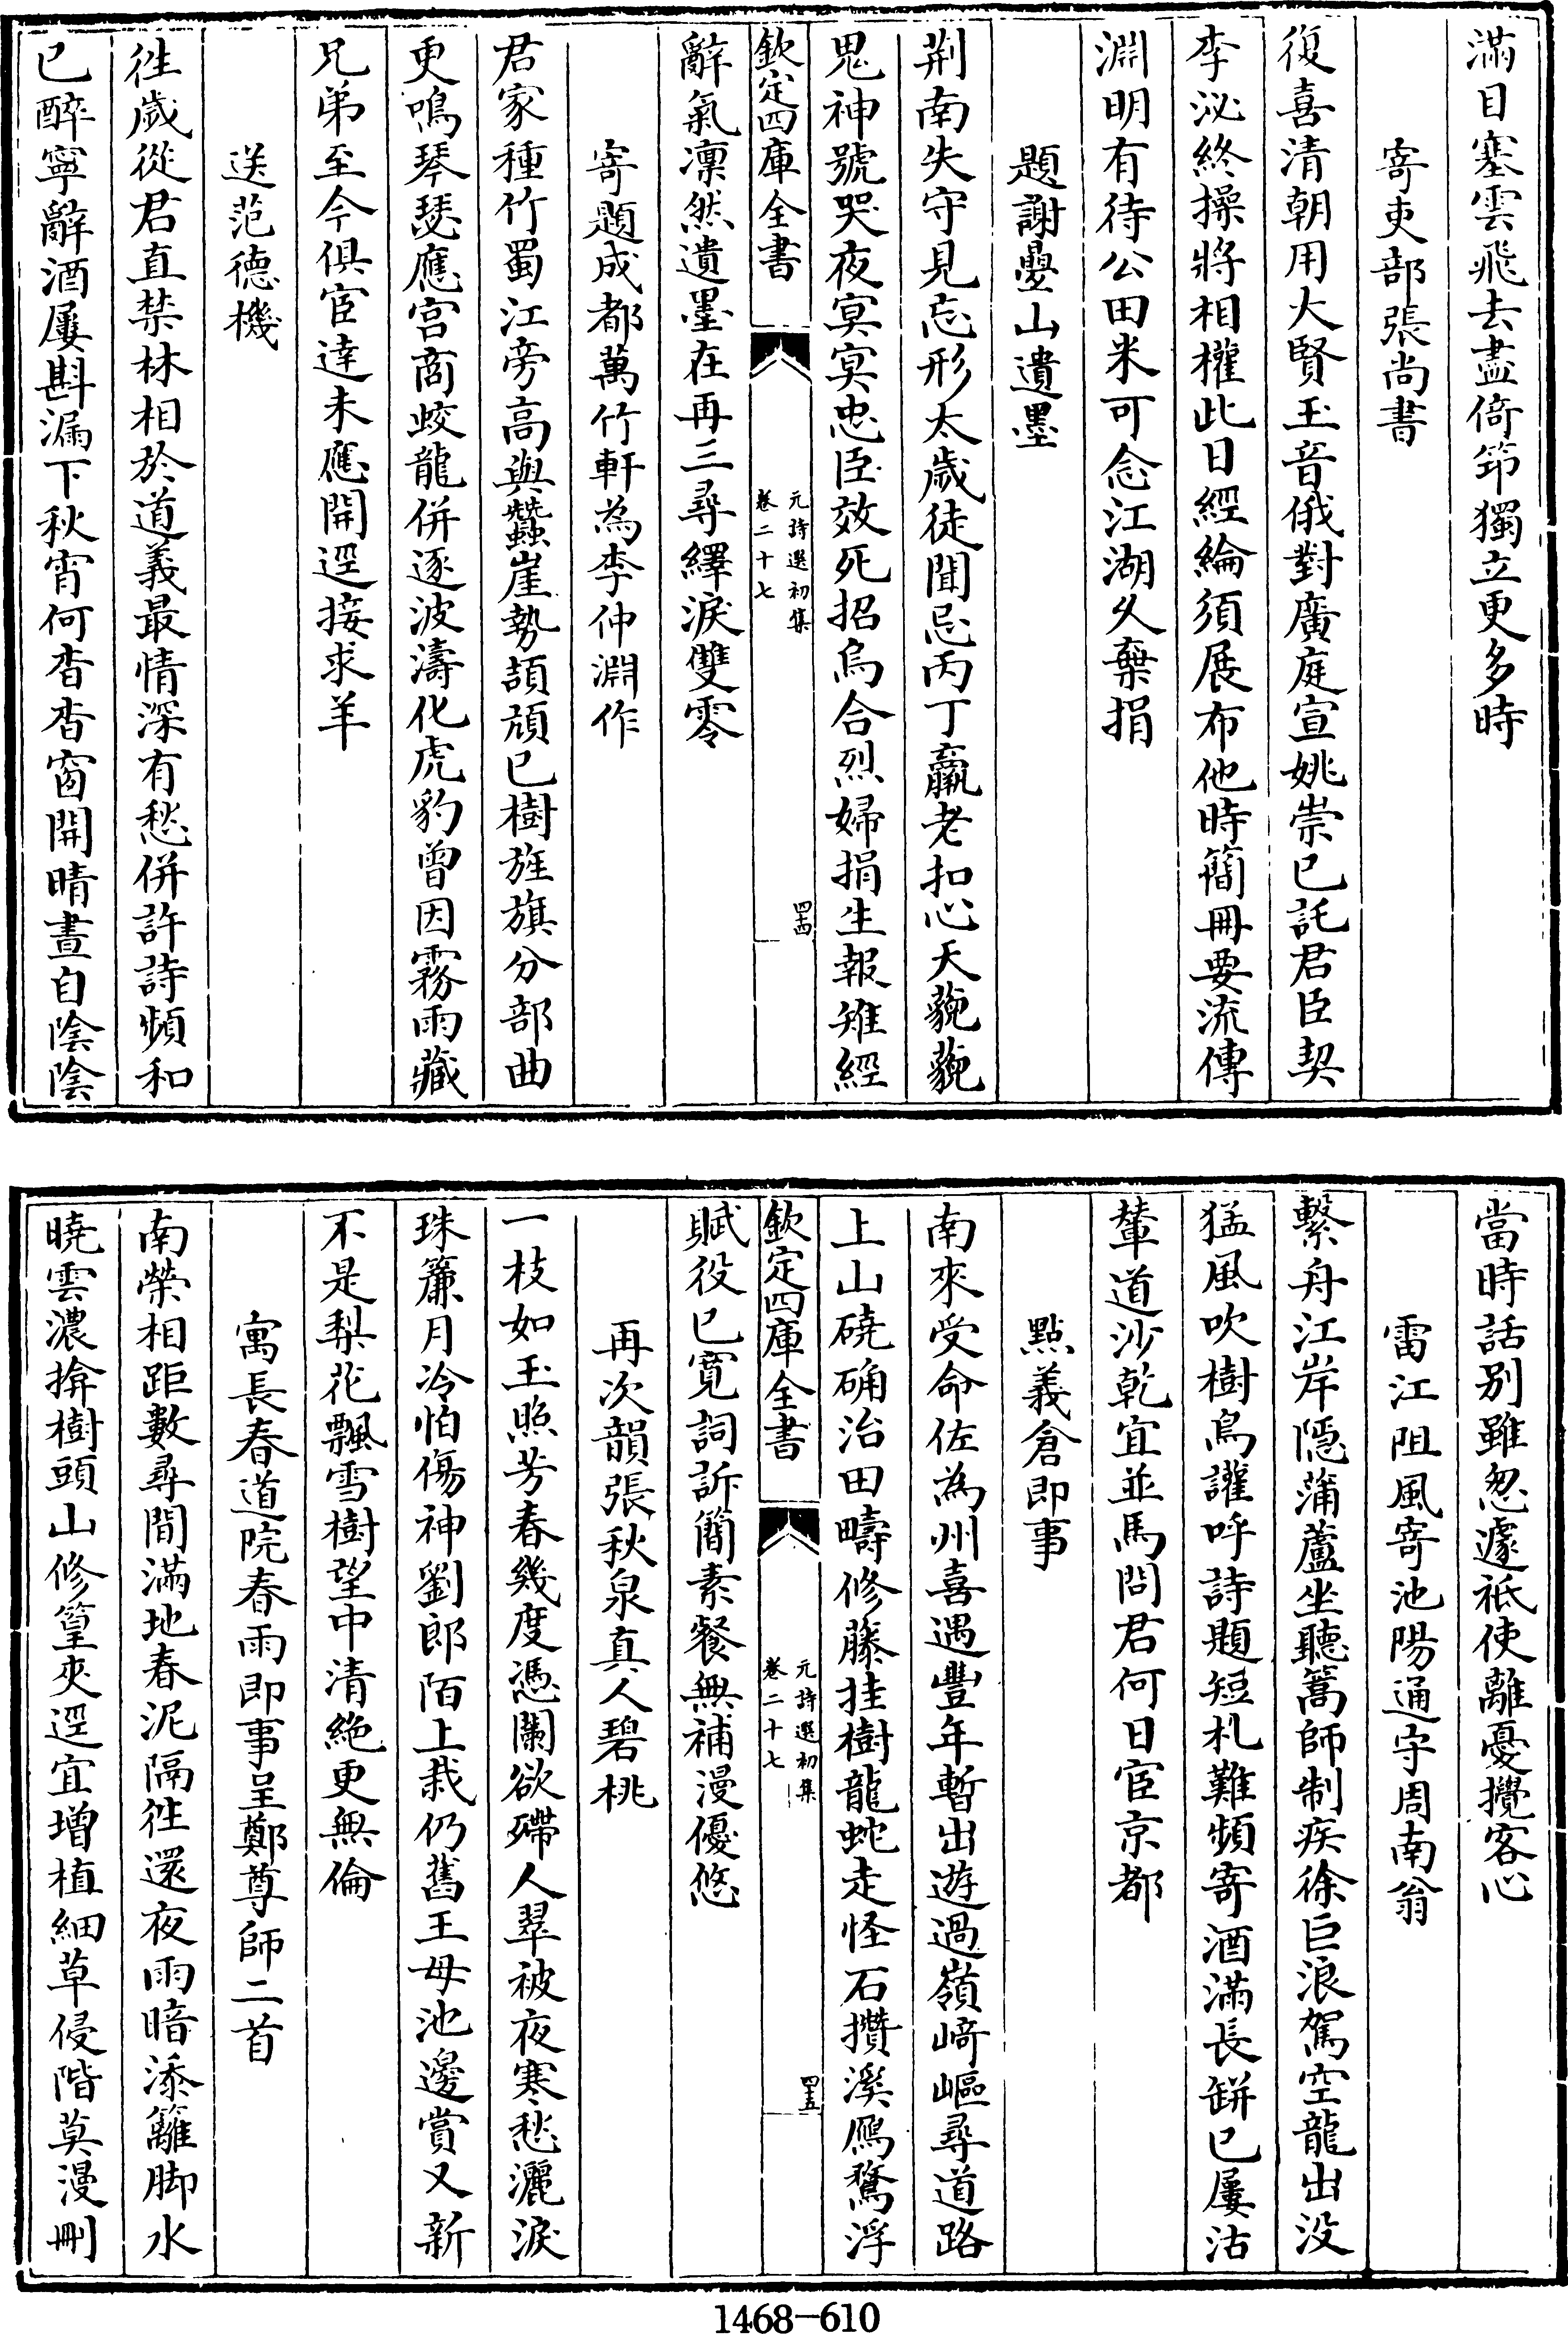 滿目塞雲飛去盡倚笻獨立更多時
寄吏部張尚書
復喜清朝用大賢玉音俄對廣庭宣姚崇已託君臣契
李泌終操將相權此日經綸須展布他時簡冊要流傳
淵明有待公田米可念江湖久棄捐
題謝疊山遺墨
荆南失守見忘形太歲徒聞忌丙丁羸老扣心天藐藐
鬼神號哭夜冥冥忠臣效死招烏合烈婦捐生報雉經
欽定四庫全書
元詩選初集
卷二十七
四十四
辭氣凛然遺墨在再三尋繹淚雙零
寄題成都萬竹軒為李仲淵作
君家種竹蜀江旁高與蠶崖勢頡頏已樹旌旗分部曲
更鳴琴瑟應宫商蛟龍併逐波濤化虎豹曾因霧雨藏
兄弟至今俱宦達未應開逕接求羊
送范德機
徃歲從君直禁林相於道義最情深有愁併許詩頻和
已醉寧辭酒屢斟漏下秋宵何杳杳窗開晴晝自陰陰
當時話别雖怱遽祗使離憂攪客心
雷江阻風寄池陽通守周南翁
繫舟江岸隱蒲蘆坐聽篙師制疾徐巨浪駕空龍出没
猛風吹樹鳥讙呼詩題短札難頻寄酒滿長缾已屢沽
輦道沙乾宜並馬問君何日宦京都
點義倉即事
南來受命佐為州喜遇豐年暫出遊過嶺崎嶇尋道路
上山磽确治田疇修藤挂樹龍蛇走怪石攢溪鴈鶩浮
欽定四庫全書
元詩選初集
卷二十七
四十五
賦役已寛詞訴簡素餐無補漫優悠
再次韻張秋泉真人碧桃
一枝如玉照芳春幾度憑闌欲殢人翠被夜寒愁灑淚
珠簾月冷怕傷神劉郎陌上栽仍舊王母池邊賞又新
不是梨花飄雪樹望中清絶更無倫
寓長春道院春雨即事呈鄭尊師二首
南榮相距數尋間滿地春泥隔徃還夜雨暗添籬脚水
曉雲濃揜樹頭山修篁夾逕宜增植細草侵階莫漫刪
1468-610